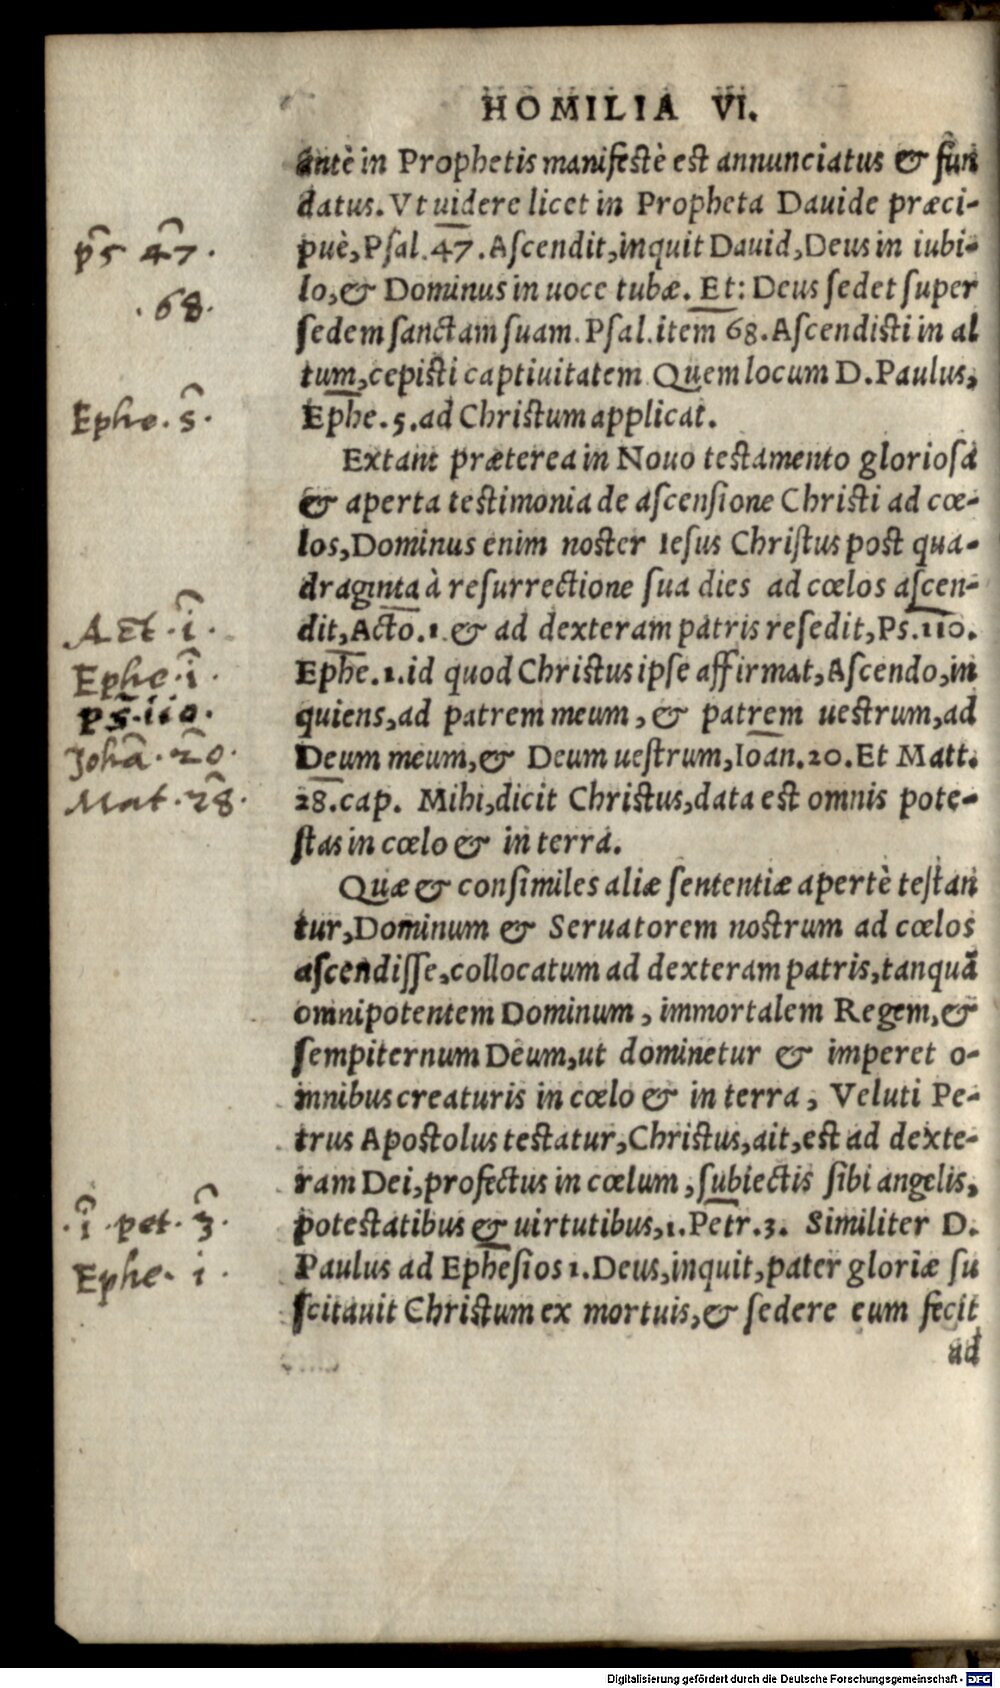 HOMILIA VI.
antè in Prophetis manifestè est annunciatus & fun
datus. Vt uidere licet in Propheta Dauide præci-
puè, Psal. 47. Ascendit, inquit Dauid, Deus in iubi-
ps 47.
lo, & Dominus in uoce tubæ. Et: Deus sedet super
.68.
sedem sanctam suam. Psal. item 68. Ascendisti in al
tum, cepisti captiuitatem Quem locum D. Paulus,
Ephe. 5. ad Christum applicat.
Ephe. 5.
Extant præterea in Nouo testamento gloriosa
& aperta testimonia de ascensione Christi ad cœ-
los, Dominus enim noster Iesus Christus post qua-
draginta à resurrectione sua dies ad cœlos ascen-
dit, Acto. 1. & ad dexteram patris resedit, Ps. 110.
Act. i.
Ephe. 1. id quod Christus ipse affirmat, Ascendo, in
Ephe. i.
quiens, ad patrem meum, & patrem uestrum, ad
ps. iio.
Deum meum, & Deum uestrum, Ioan. 20. Et Matt.
Johā. 20.
28. cap. Mihi, dicit Christus, data est omnis pote-
Mat. 28.
stas in cœlo & in terra.
Quæ & consimiles aliæ sententiæ apertè testan
tur, Dominum & Seruatorem nostrum ad cœlos
ascendisse, collocatum ad dexteram patris, tanquā
omnipotentem Dominum, immortalem Regem, &
sempiternum Deum, ut dominetur & imperet o-
mnibus creaturis in cœlo & in terra, Veluti Pe-
trus Apostolus testatur, Christus, ait, est ad dexte-
ram Dei, profectus in cœlum, subiectis sibi angelis,
potestatibus & uirtutibus, 1. Petr. 3. Similiter D.
.i. pet. 3.
Paulus ad Ephesios 1. Deus, inquit, pater gloriæ su
Ephe. i.
scitauit Christum ex mortuis, & sedere eum fecit
ad
Digitalisierung gefördert durch die Deutsche Forschungsgemeinschaft - DFG